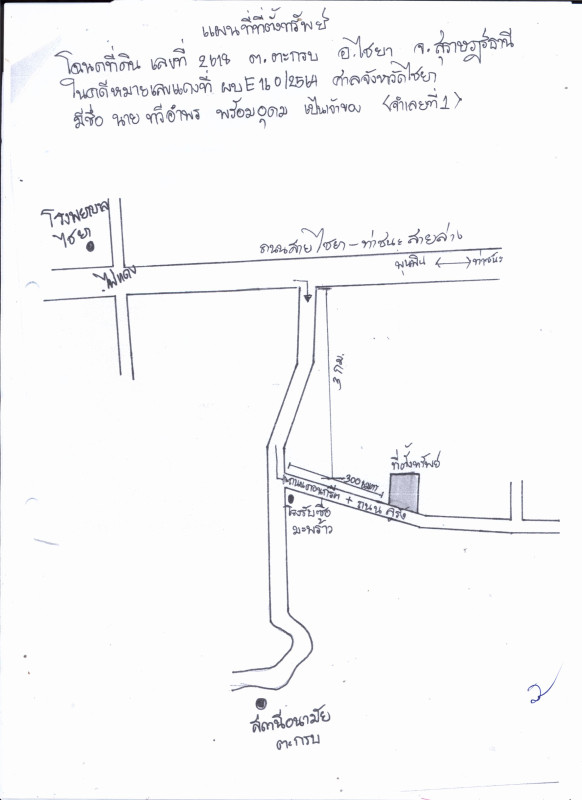 แผนที่ที่ตั้งทรัพย์
โฉนดที่ดิน เลขที่ 2618 ต.ตะกรบ อ.ไชยา จ.สุราษฎร์ธานี
ในคดีหมายเลขแดงที่ ผบE160/2564 ศาลจังหวัดไชยา
มีชื่อ นาย ทวีอำพร พร้อมอุดม เป็นเจ้าของ (จำเลยที่ 1)
โรงพยาบาล
ไชยา
ถนนสายไชยา-ท่าชนะ สายล่าง
ไฟแดง
พุนพิน ท่าชนะ
3 กม.
ที่ตั้งทรัพย์
300 เมตร
ถนนคอนกรีต + ถนน
โรงรับซื้อ
มะพร้าว
สถานีอนามัย
ตะกรบ